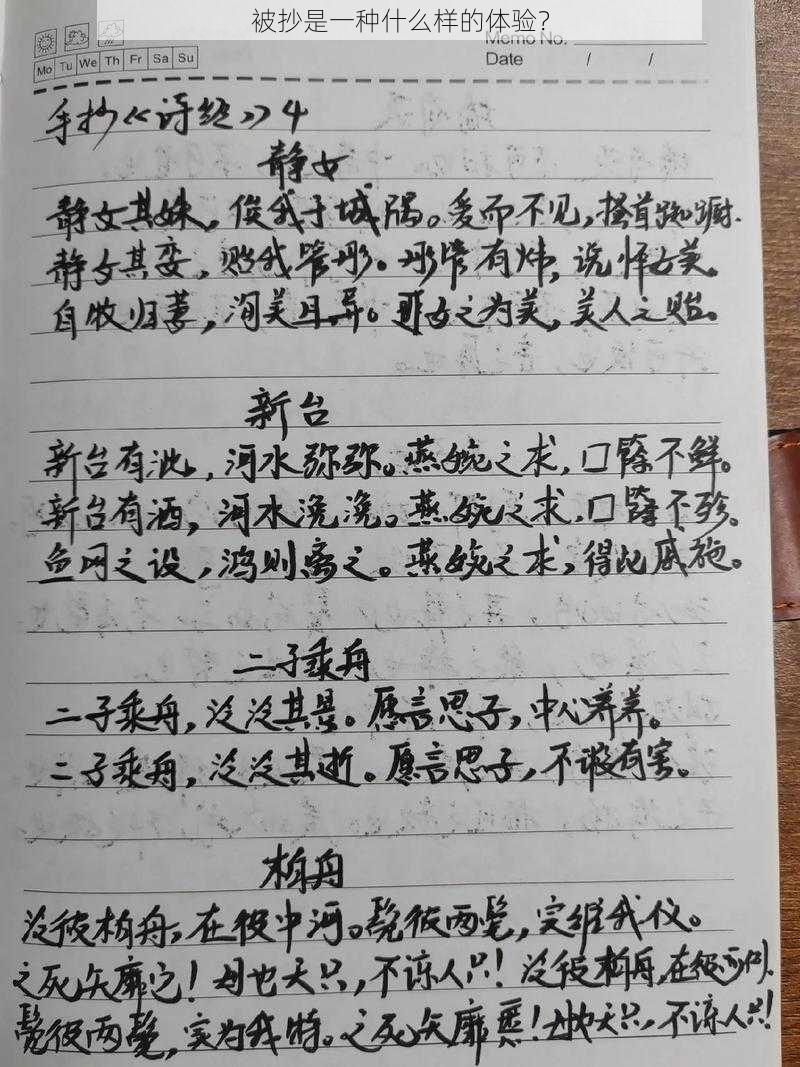 被抄是一种什么样的体验？
Memo No.
Mo Tu We Th Fr Sa Su
Date / /
手抄《诗经》4
静女
静女其姝，俟我于城隅。爱而不见，搔首踟蹰.
静女其娈，贻我管彤。彤管有炜，说怿女美。
自牧归荑，洵美且异。匪女之为美，美人之贻。
新台
新台有泚，河水弥弥。燕婉之求，口篨不鲜。
新台有洒，河水浼浼。燕婉之求，口篨不殄。
鱼网之设，鸿则离之。燕婉之求，得此戚施。
二子乘舟
二子乘舟，泛泛其景。愿言思子，中心养养。
二子乘舟，泛泛其逝。愿言思子，不瑕有害。
柏舟
泛彼柏舟，在彼中河。髧彼两髦，实维我仪。
之死矢靡它！母也天只，不谅人只！泛彼柏舟，在彼河侧.
髧彼两髦，实为我特。之死矢靡慝！母也天只，不谅人只！